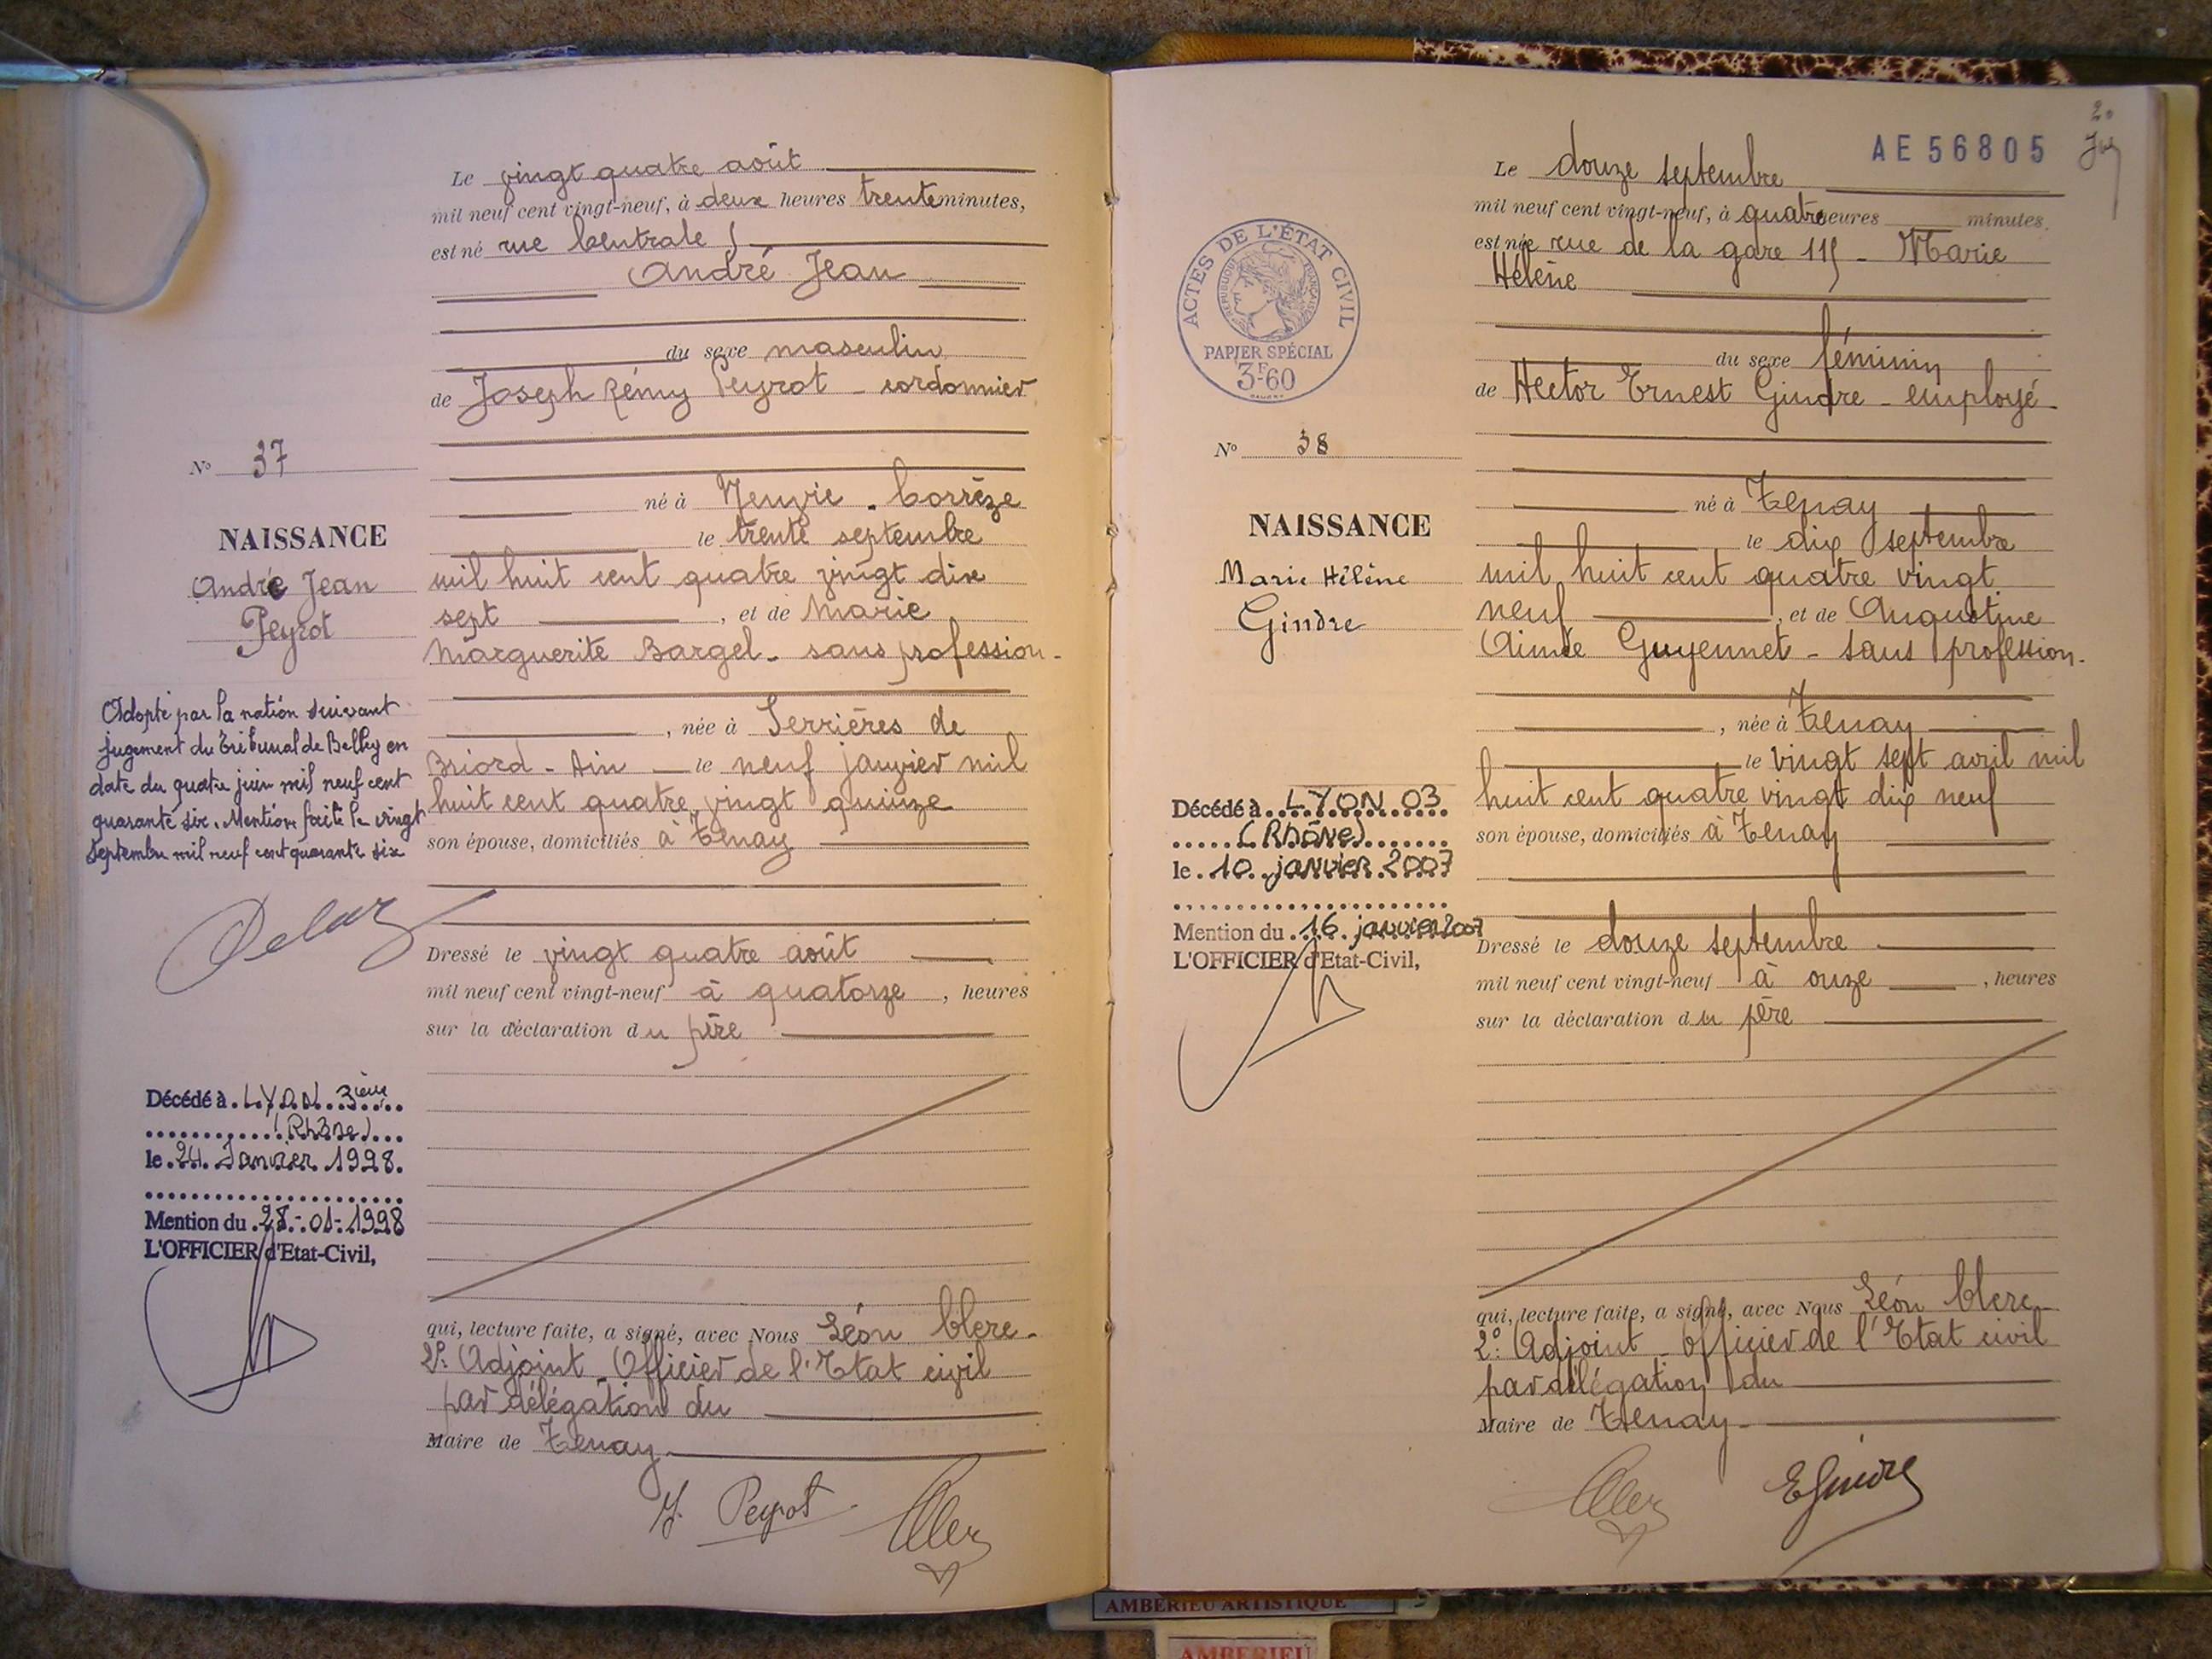 Le vingt quatre août
mil neuf cent vingt-neuf, à deux heures trente minutes,
est né rue Centrale
André Jean
du sexe masculin
de Joseph Rémy Peyrot - cordonnier
né à Neuvic . Corrèze
le trente septembre
mil huit cent quatre vingt dix
sept , et de Marie
Marguerite Bargel - sans profession -
, née à Serrières de
Briord - Ain le neuf janvier mil
huit cent quatre vingt quinze
son épouse, domiciliés à Tenay
Dressé le vingt quatre août
mil neuf cent vingt-neuf à quatorze , heures
sur la déclaration du père
qui, lecture faite, a signé, avec Nous Léon Clerc -
2e Adjoint Officier de l'Etat civil
par délégation du
Maire de Tenay
J. Peyrot
N° 37
NAISSANCE
André Jean
Peyrot
Adopté par la nation suivant
jugement du Tribunal de Belley en
date du quatre juin mil neuf cent
quarante six. Mention faite le vingt
septembre mil neuf cent quarante six
Décédé à LYON 3ième
(Rhône)
le 24 Janvier 1998.
Mention du 28-01-1998
L'OFFICIER d'Etat-Civil,
20
AE 56805
Le douze septembre
mil neuf cent vingt-neuf, à quatre heures minutes.
est née rue de la gare 115 - Marie
Hélène
du sexe féminin
de Hector Ernest Gindre - employé
né à Tenay
le dix septembre
mil huit cent quatre vingt
neuf , et de Augustine
Aimée Guyennet - sans profession.
, née à Tenay
le vingt sept avril mil
huit cent quatre vingt dix neuf
son épouse, domiciliés à Tenay
Dressé le douze septembre
mil neuf cent vingt-neuf à onze , heures
sur la déclaration du père
qui, lecture faite, a signé, avec Nous Léon Clerc
2e Adjoint - Officier de l'Etat civil
par délégation du
Maire de Tenay
E Gindre
ACTES DE L'ÉTAT CIVIL
RÉPUBLIQUE FRANÇAISE
PAPIER SPÉCIAL
3F60
N° 38
NAISSANCE
Marie Hélène
Gindre
Décédé à LYON 03
(RHône)
le 10 janvier 2007
Mention du 16 janvier 2007
L'OFFICIER d'Etat-Civil,
AMBÉRIEU ARTISTIQUE
AMBERIEU